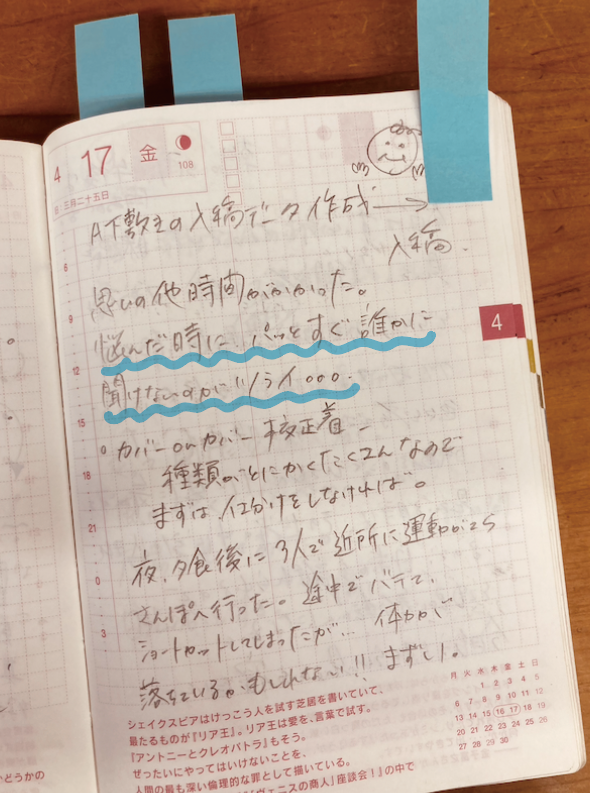 4 17 金
108
三月二十五日
下敷きの入稿データ作成 →
入稿.
思いの他時間がかかった。
悩んだ時に、パッとすぐ誰かに
聞けないのがツライ。。。.
6
9
12
15
18
21
0
3
4
○カバーonカバー 校正着_
種類ごとにかくたくさんなので
まずは、仕分けをしなければ。
夜、夕食後に3人で近所に運動がてら
さんぽへ行った。途中でバテて、
ショートカットしてしまったが… 体力が
落ちているかもしれない!! まずい。
シェイクスピアはけっこう人を試す芝居を書いていて、
最たるものが『リア王』。リア王は愛を、言葉で試す。
『アントニーとクレオパトラ』もそう。
ぜったいにやってはいけないことを、
人間の最も深い倫理的な罪として描いている。
『ヴェニスの商人』座談会！』の中で
月 火 水 木 金 土 日
1 2 3 4 5
6 7 8 9 10 11 12
13 14 15 16 17 18 19
20 21 22 23 24 25 26
27 28 29 30
かどうかの